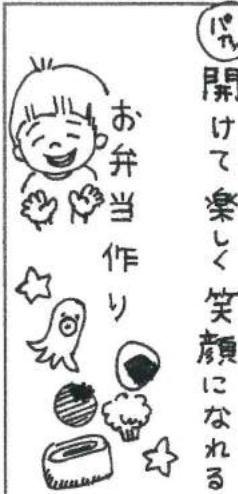 パカッ
開けて楽しく笑顔になれる
お弁当作り